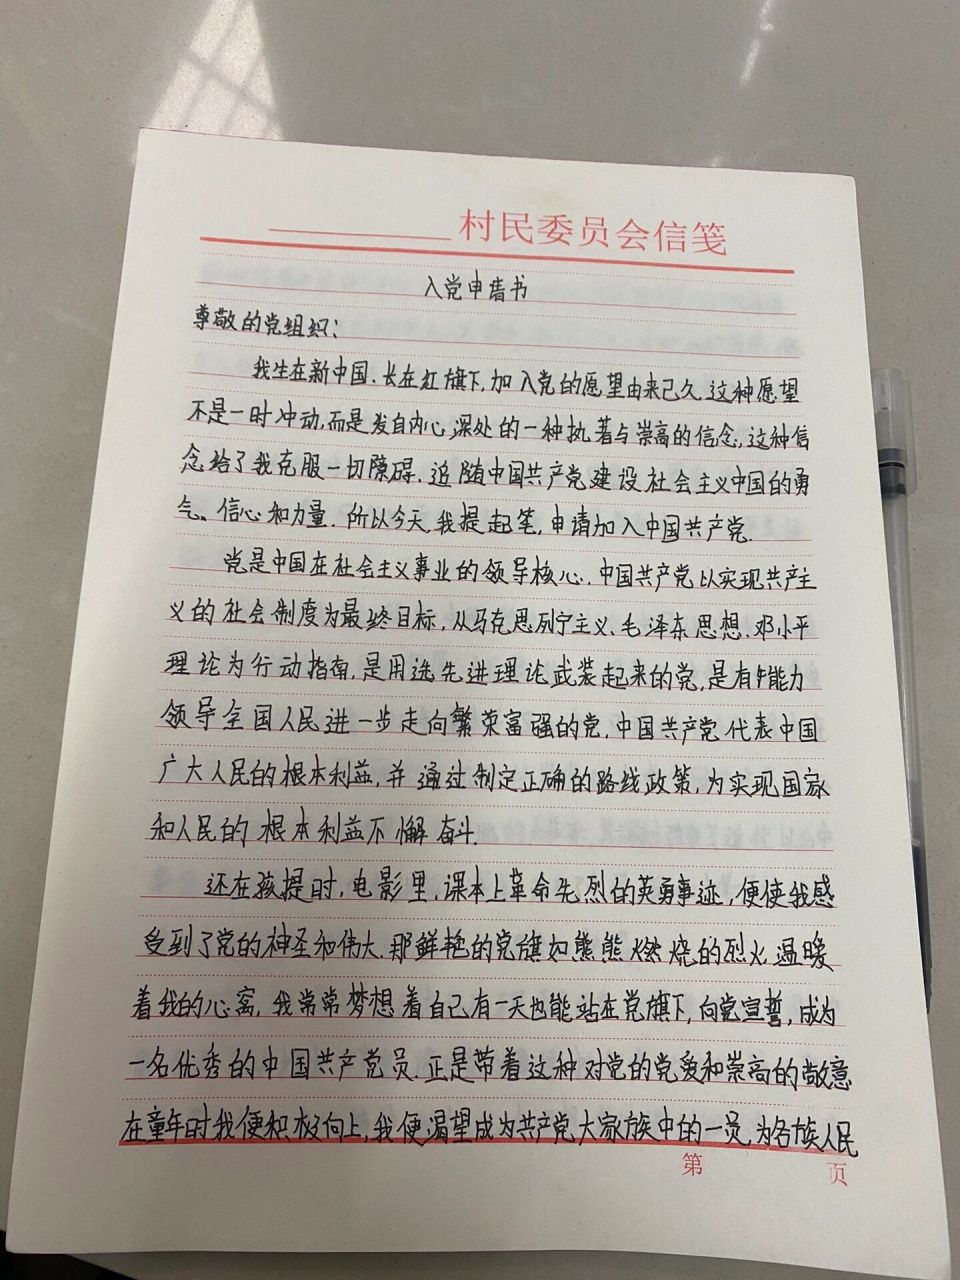 村民委员会信笺
入党申请书
尊敬的党组织:
我生在新中国.长在红旗下,加入党的愿望由来已久.这种愿望
不是一时冲动,而是发自内心深处的一种执著与崇高的信念,这种信
念给了我克服一切障碍.追随中国共产党建设社会主义中国的勇
气、信心和力量.所以今天,我提起笔,申请加入中国共产党.
党是中国在社会主义事业的领导核心.中国共产党以实现共产主
义的社会制度为最终目标,从马克思列宁主义、毛泽东思想.邓小平
理论为行动指南,是用选先进理论武装起来的党,是有能力
领导全国人民进一步走向繁荣富强的党.中国共产党代表中国
广大人民的根本利益,并通过制定正确的路线政策,为实现国家
和人民的根本利益不懈奋斗.
还在孩提时,电影里,课本上革命先烈的英勇事迹,便使我感
受到了党的神圣和伟大.那鲜艳的党旗如熊熊燃烧的烈火温暖
着我的心窝,我常常梦想着自己有一天也能站在党旗下,向党宣誓,成为
一名优秀的中国共产党员.正是带着这种对党的党爱和崇高的敬意
在童年时我便积极向上,我便渴望成为共产党大家族中的一员,为各族人民
第 页